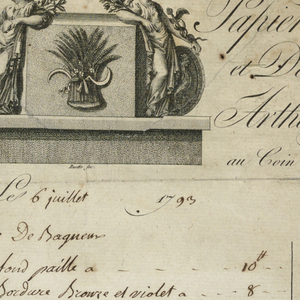 Papier
et D
Arthu
au Coin
Le 6 juillet 1793
De Bagneux
fond paille a - - - 10 tt
Bordure Bronze et violet a - - 8 -